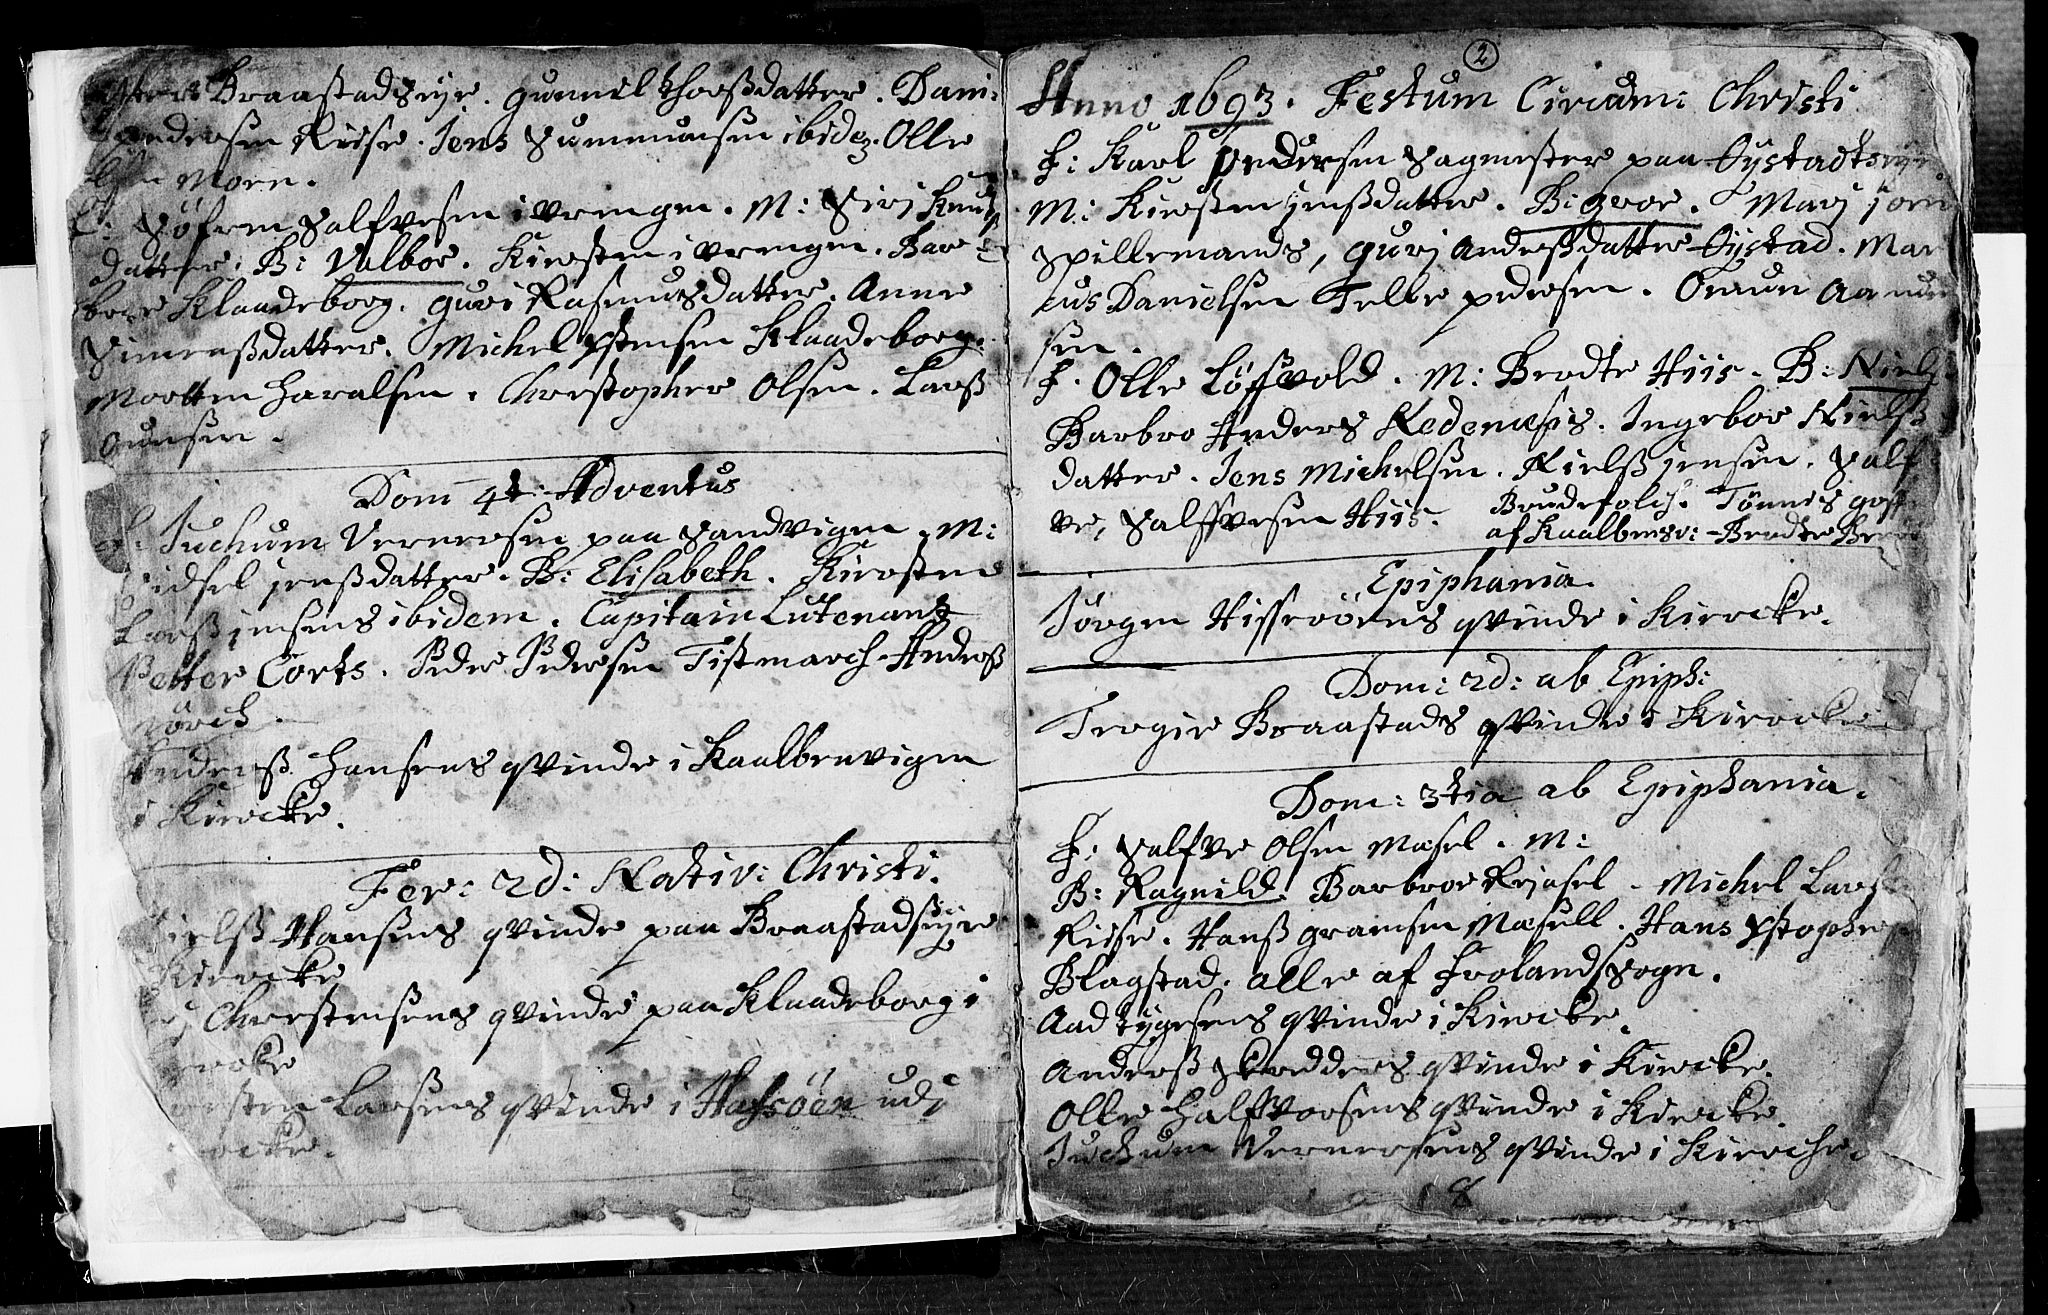 Braastadsøye. Gunnel Thorßdatter. Dani:
Andersen Riise. Jens Summunsen ibidem. Olle
Morn.
F: Søfren Salfvesen i vrengen. M: Siri Knudz
datter. B: Valbor. Kiersten i vrengen. Bar
Klaadeborg. Guri Rasmusdatter. Anne
Simensßdatter. Michel Ystensen Klaadeborg.
Morten Haralsen. Christopher Olsen. Larß
Aunsen.
Dom 4t: Adventus
Juchum Vernersen paa Sandvigen. M:
Sidsel jenßdatter. B: Elisabeth. Kiersten
Larß jensens ibidem. Capitain Lutenant
Petter Corts. Peder Pedersen Tistmarch. Anderß
Yørch.
Anderß Hansens qvinde i Kaalbenvigen
i Kircke.
Fer: 2d: Nativ: Christi.
Nielß Hansens qvinde paa Braastadsøye
Kircke
Christensens qvinde paa Klaadeborg i
Kircke
Kiersten Larsens qvinde i Hassøen udi
Kircke.
2
Anno 1693. Festum Circum: Christi
F: Karl Pedersen Sagmester paa Øystadtsøye
M: Kirsten jenßdatter. B: Gvor. Mari jorn
Spillemands, Guri Anderßdatter Øystad. Mar
cus Danielsen Telle pedersen. Oraun Aanun
sen.
F. Olle Løfsvold. M: Brodte Hiis. B: Nielß.
Barbro Anders Redenæsis. Ingebor Nielß
datter. Jens Michelsen. Nielß jensen. Salf
ve, Salffvesen Hiis. Brudefolch. Tønnes
af Kaalbensv: Brodte
Epiphania.
Jørgen Hisserøens qvinde i Kircke.
Dom: 2d: ab Epiph:
Trogir Braastads qvinde i Kircke
Dom: 3tia ab Epiphania.
F: Salfve Olsen Mæsel. M:
B: Ragnild. Barbroe Mæsel. Michel Larß
Riise. Hanß Gramsen Mæsell. Hans Xstopher
Blagstad. alle af Frolands Sogn.
Aad tygesens qvinde i Kircke.
Anderß Skredders qvinde i Kircke.
Olle Halfvorsens qvinde i Kircke.
Juchum Vernersens qvinde i Kirche.
8